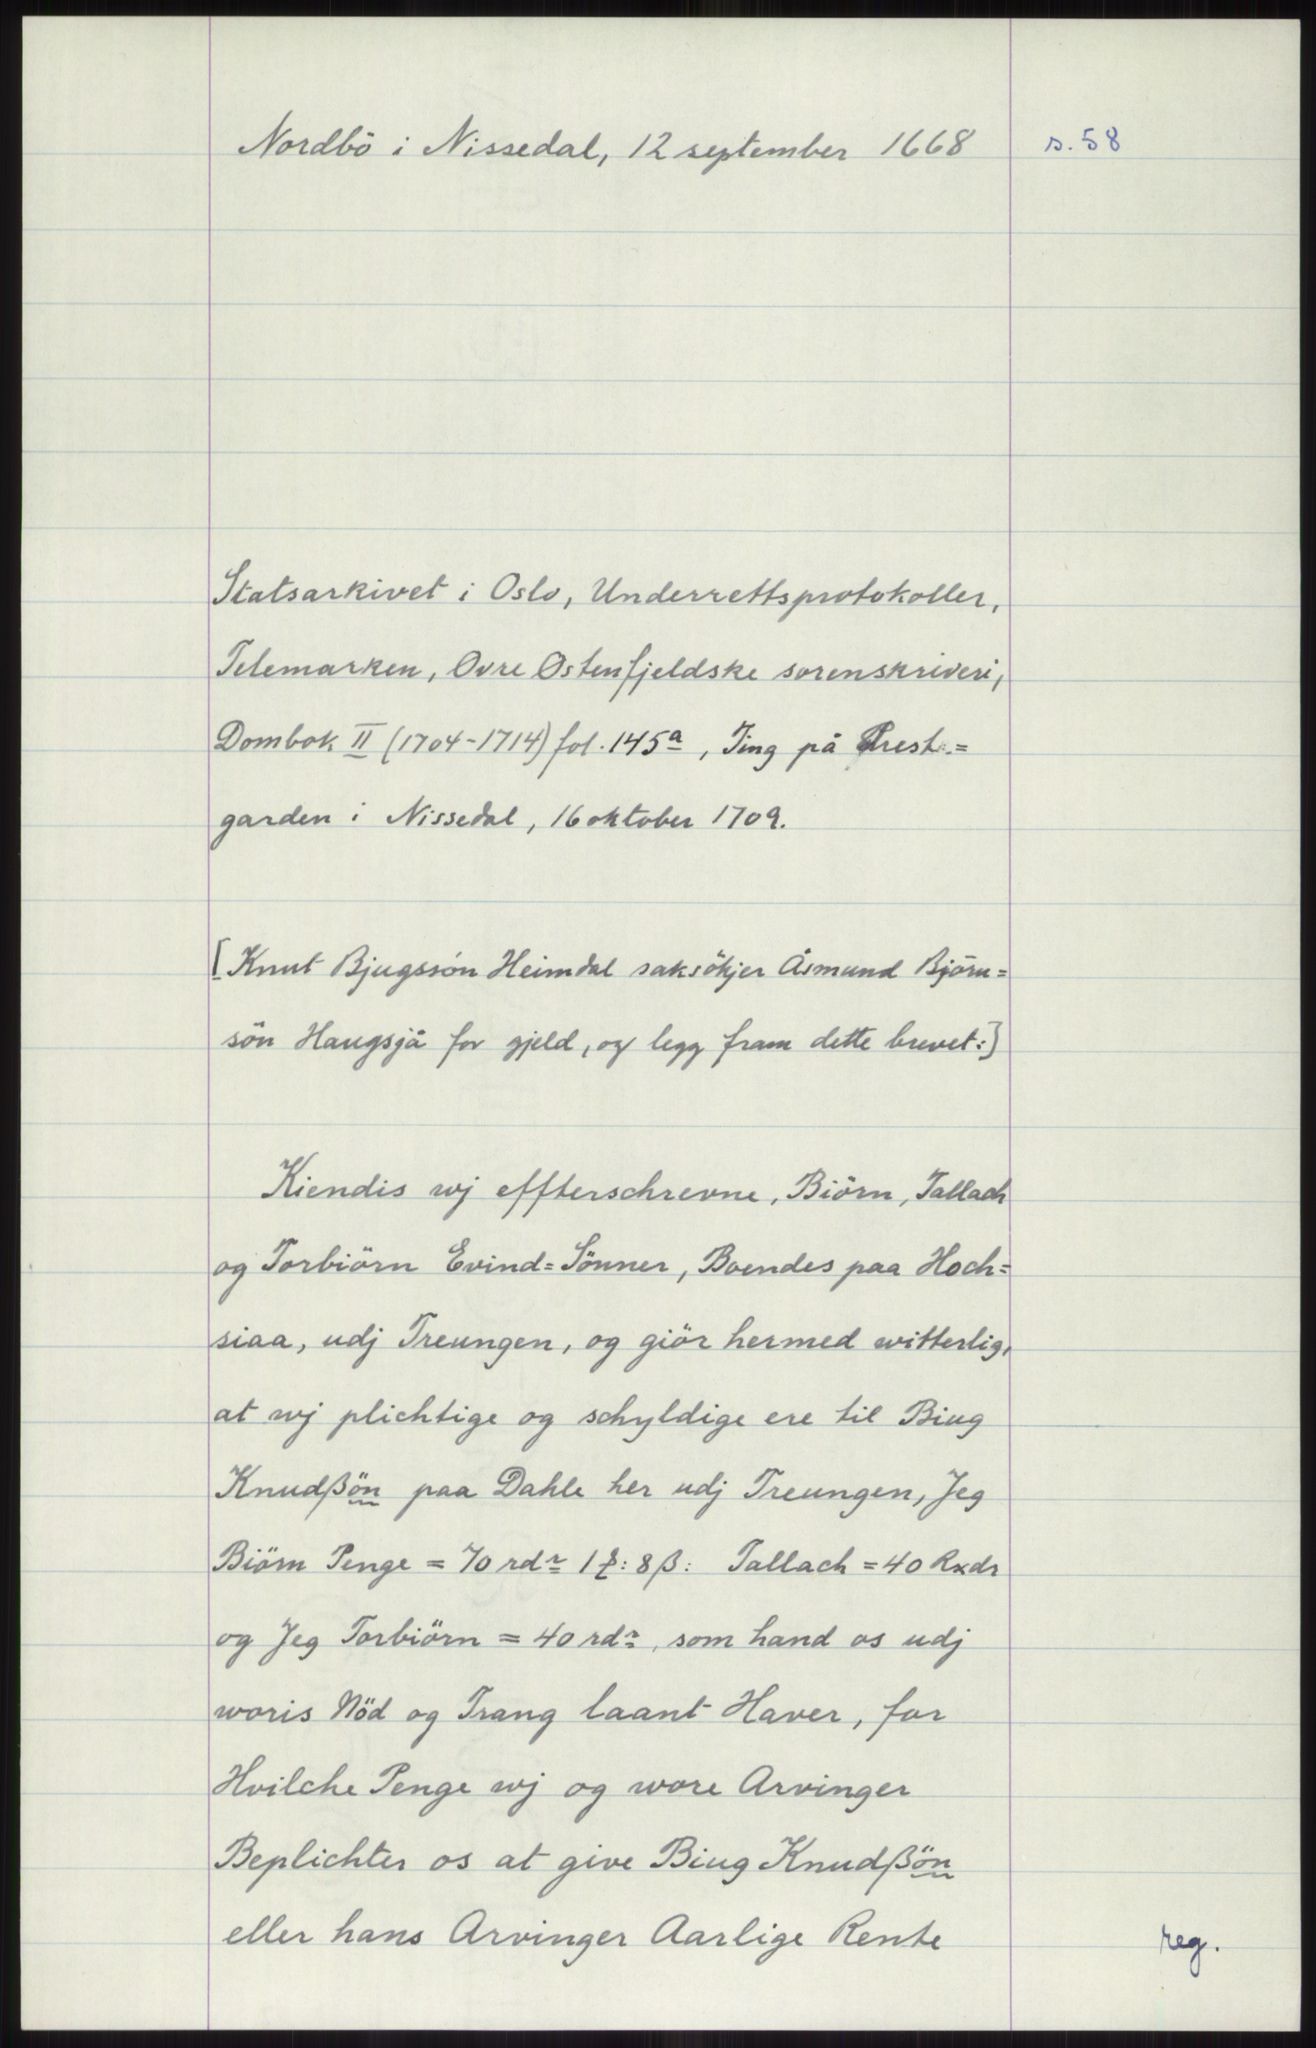 Nordbö i Nissedal, 12 september 1668
s. 58
Statsarkivet i Oslo, Underrettsprotokoller,
Telemarken, Ovre Ostenfjeldske sorenskriveri,
Dombok II (1704-1714) fol. 145a, Ting på Prest=
garden i Nissedal, 16 oktober 1709.
[Knut Bjugssön Heimdal saksökjer Åsmund Björn=
sön Haugsjå for gjeld, og legg fram dette brevet:]
Kiendis wj effterschrevne, Biörn, Tallach
og Torbiörn Evind=Sönner, Boendes paa Hoch=
siaa, udj Treungen, og giör hermed witterlig,
at wj plichtige og schyldige ere til Biug
Knudßön paa Dahle her udj Treungen, Jeg
Biörn Penge = 70 rdr 1 : 8 ß: Tallach = 40 Rxdr
og Jeg Torbiörn = 40 rdr, som hand os udj
woris Nöd og Trang laant Haver, for
Hvilche Penge wj og wore Arvinger
Beplichter os at give Biug Knudßön
eller hans Arvinger Aarlige Rente
reg.